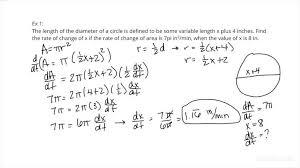 Ex 1:
The length of the diameter of a circle is defined to be some variable length x plus 4 inches. Find
the rate of change of x if the rate of change of area is 7pi in²/min, when the value of x is 8 in.
A = πr²
r = ½d → r = ½(x+4)
r = ½x + 2
d/dt (A = π(½x+2)²)
dA/dt = 2π(½x+2)(½ dx/dt)
7π = 2π(4+2)(½ dx/dt)
7π = 2π(3) dx/dt
7π = 6π dx/dt → dx/dt = 7π/6π → 1.16 in/min
x+4
dA/dt = 7π
x = 8
dx/dt = ?